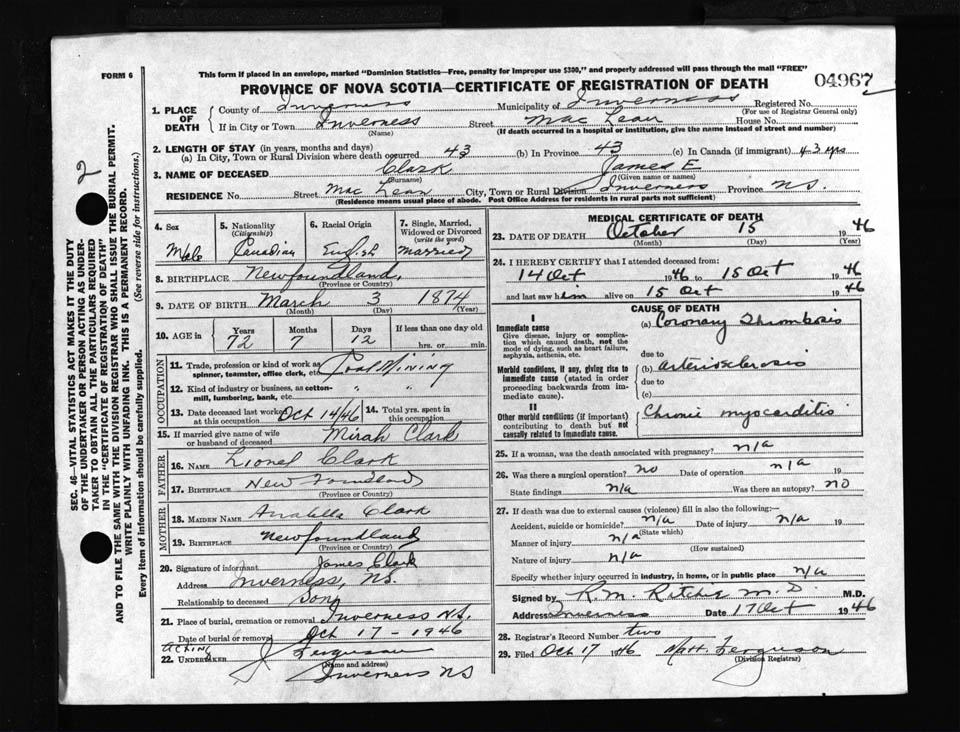 FORM 6
This form if placed in an envelope, marked "Dominion Statistics—Free, penalty for improper use $300," and properly addressed will pass through the mail "FREE"
PROVINCE OF NOVA SCOTIA—CERTIFICATE OF REGISTRATION OF DEATH
04967
1. PLACE OF DEATH
County of Inverness Municipality of Inverness Registered No.
(For use of Registrar General only)
If in City or Town Inverness Street Mac Lean House No.
(Name) (If death occurred in a hospital or institution, give the name instead of street and number)
2. LENGTH OF STAY (in years, months and days)
(a) In City, Town or Rural Division where death occurred 43 (b) In Province 43 (c) In Canada (if immigrant) 43 yrs
3. NAME OF DECEASED Clark James E.
(Surname) (Given name or names)
RESIDENCE No. Street Mac Lean City, Town or Rural Division Inverness Province N.S.
(Residence means usual place of abode. Post Office Address for residents in rural parts not sufficient)
4. Sex
Male
5. Nationality
(Citizenship)
Canadian
6. Racial Origin
English
7. Single, Married, Widowed or Divorced
(write the word)
Married
8. BIRTHPLACE Newfoundland,
(Province or Country)
9. DATE OF BIRTH March 3 1874
(Month) (Day) (Year)
10. AGE in Years Months Days If less than one day old
72 7 12 hrs. or min.
OCCUPATION
11. Trade, profession or kind of work as spinner, teamster, office clerk, etc. Coal Mining
12. Kind of industry or business, as cotton-mill, lumbering, bank, etc. " "
13. Date deceased last worked at this occupation Oct 14/46
14. Total yrs. spent in this occupation
15. If married give name of wife or husband of deceased Mirah Clark
FATHER
16. NAME Lionel Clark
17. BIRTHPLACE New Foundland
(Province or Country)
MOTHER
18. MAIDEN NAME Anabella Clark
19. BIRTHPLACE Newfoundland
(Province or Country)
20. Signature of informant James Clark
Address Inverness, N.S.
Relationship to deceased Son
21. Place of burial, cremation or removal Inverness N.S.
Date of burial or removal Oct 17 - 1946
Acting
22. UNDERTAKER J Ferguson
(Name and address)
Inverness NS
MEDICAL CERTIFICATE OF DEATH
23. DATE OF DEATH October 15 1946
(Month) (Day) (Year)
24. I HEREBY CERTIFY that I attended deceased from:
14 Oct 1946 to 15 Oct 1946
and last saw him alive on 15 Oct 1946
CAUSE OF DEATH
I
Immediate cause
Give disease, injury or complication which caused death, not the mode of dying, such as heart failure, asphyxia, asthenia, etc.
(a) Coronary Thrombosis
due to
Morbid conditions, if any, giving rise to immediate cause (stated in order proceeding backwards from immediate cause).
(b) arteriosclerosis
due to
(c)
II
Other morbid conditions (if important) contributing to death but not causally related to immediate cause.
Chronic myocarditis
25. If a woman, was the death associated with pregnancy? n/a
26. Was there a surgical operation? no Date of operation n/a 19
State findings n/a Was there an autopsy? no
27. If death was due to external causes (violence) fill in also the following:—
Accident, suicide or homicide? n/a Date of injury n/a 19
(State which)
Manner of injury n/a
(How sustained)
Nature of injury n/a
Specify whether injury occurred in industry, in home, or in public place n/a
Signed by R.M. Ritchie M.D. M.D.
Address Inverness Date 17 Oct 1946
28. Registrar's Record Number two
29. Filed Oct 17 1946 Matt. Ferguson
(Division Registrar)
2
SEC. 46—VITAL STATISTICS ACT MAKES IT THE DUTY
OF THE UNDERTAKER OR PERSON ACTING AS UNDER-
TAKER TO OBTAIN ALL THE PARTICULARS REQUIRED
IN THE "CERTIFICATE OF REGISTRATION OF DEATH"
AND TO FILE THE SAME WITH THE DIVISION REGISTRAR WHO SHALL ISSUE THE BURIAL PERMIT.
WRITE PLAINLY WITH UNFADING INK. THIS IS A PERMANENT RECORD.
Every item of information should be carefully supplied. (See reverse side for instructions.)